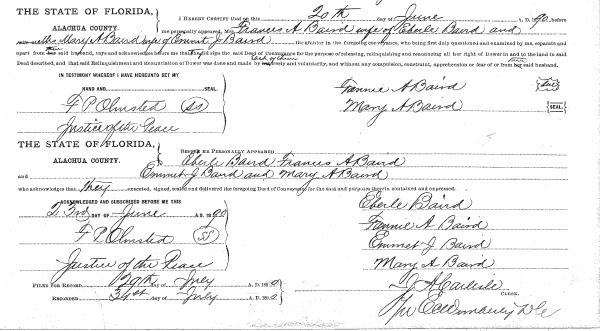 THE STATE OF FLORIDA,
ALACHUA COUNTY.
I HEREBY CERTIFY that on this 20th day of June A. D. 1890, before
me personally appeared, Mrs. Frances A Baird wife of Eberle Baird and
Mary A Baird wife of Emmet J Baird the grantor in the foregoing conveyance, who being first duly questioned and examined by me, separate and
apart from their said husband, says and acknowledges before me that sign the said Deed of Conveyance for the purpose of releasing, relinquishing and renouncing all her right of Dower in and to the land in said
Deed described, and that said Relinquishment and Renunciation of Dower was done and made by each of them freely and voluntarily, and without any compulsion, constraint, apprehension or fear of or from their said husband.
IN TESTIMONY WHEREOF I HAVE HEREUNTO SET MY
HAND AND SEAL.
F P Olmsted SS
Justice of the Peace
Fannie A Baird SEAL
Mary A Baird SEAL.
THE STATE OF FLORIDA,
ALACHUA COUNTY.
BEFORE ME PERSONALLY APPEARED
Eberle Baird Frances A Baird
and Emmet J Baird and Mary A Baird
who acknowledges that they executed, signed, sealed and delivered the foregoing Deed of Conveyance for the uses and purposes therein contained and expressed.
ACKNOWLEDGED AND SUBSCRIBED BEFORE ME THIS
23rd DAY OF June A. D. 1890
F P Olmsted SS
Justice of the Peace
Eberle Baird
Fannie A Baird
Emmet J Baird
Mary A Baird
FILED FOR RECORD 29th day of July A. D. 1890
RECORDED 31st day of July A. D. 1890
J A Carlisle
CLERK.